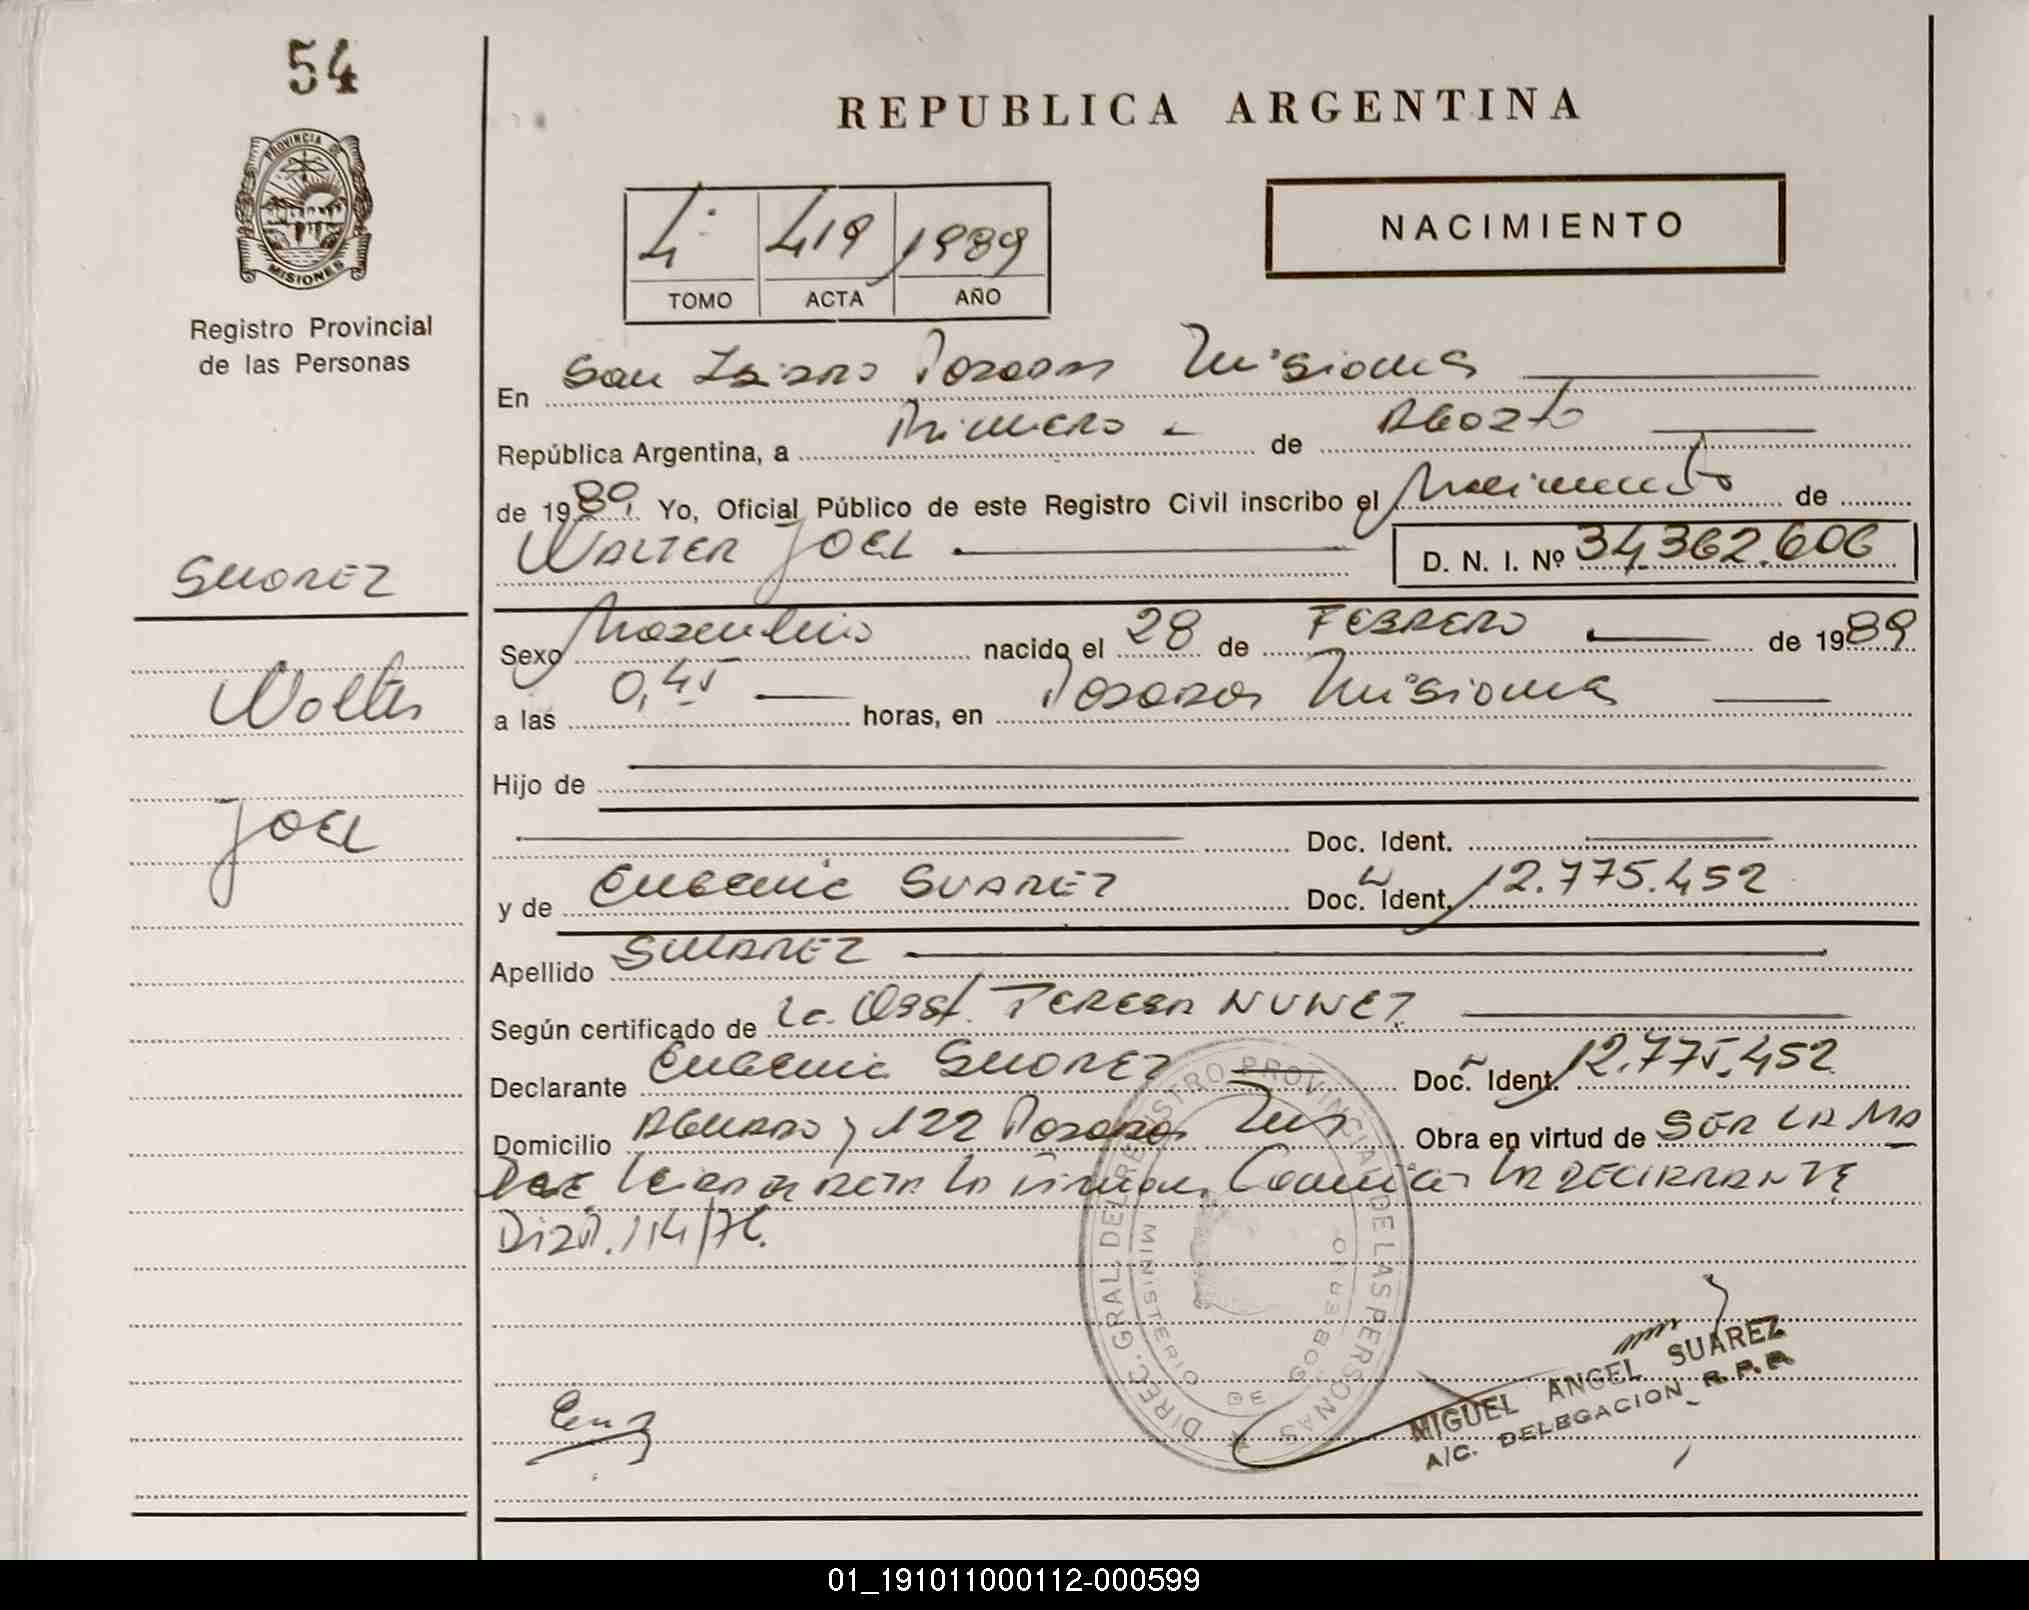 54
REPUBLICA ARGENTINA
PROVINCIA DE
MISIONES
Registro Provincial
de las Personas
4º 419 1989
TOMO ACTA AÑO
NACIMIENTO
En San Isidro Posadas Misiones
República Argentina, a Primero de Agosto
de 1989. Yo, Oficial Público de este Registro Civil inscribo el Nacimiento de
WALTER JOEL D. N. I. Nº 34.362.606
SUAREZ
Walter
JOEL
Sexo Masculino nacido el 28 de FEBRERO de 1989
a las 0,45 horas, en Posadas Misiones
Hijo de
Doc. Ident.
y de Eugenia SUAREZ Doc. Ident. 12.775.452
Apellido SUAREZ
Según certificado de la Obst. TERESA NUÑEZ
Declarante Eugenia SUAREZ Doc. Ident. 12.775.452
Domicilio AGUADO y 122 Posadas Mis Obra en virtud de SER LA MA
DRE Leida el acta la firman Conmigo LA DECLARANTE
Disp. 114/76.
DIREC. GRAL. DEL REGISTRO PROVINCIAL DE LAS PERSONAS
MINISTERIO DE GOBIERNO
MIGUEL ANGEL SUAREZ
A/C. DELEGACION R.P.P.
01_191011000112-000599